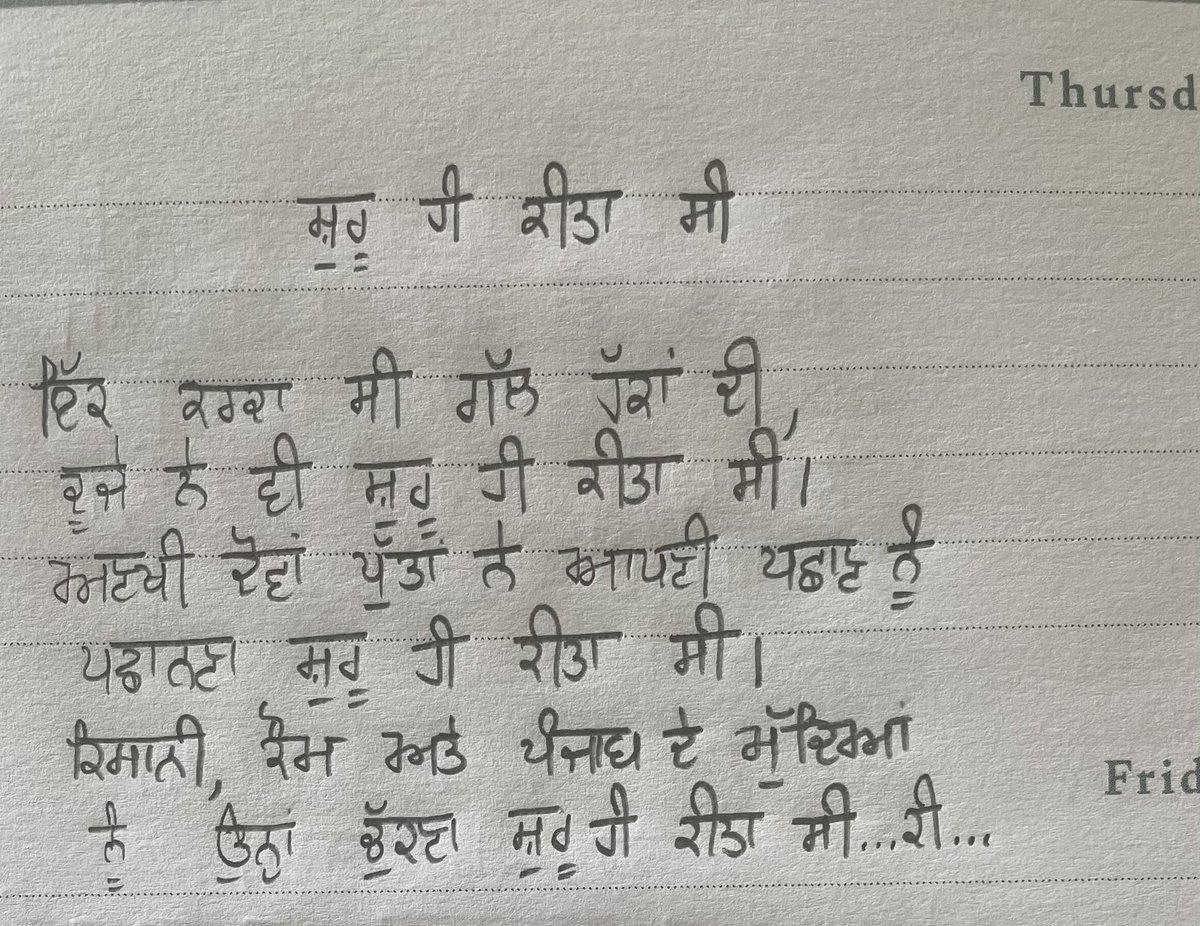 ਸ਼ੁਰੂ ਹੀ ਕੀਤਾ ਸੀ
ਇੱਕ ਕਰਦਾ ਸੀ ਗੱਲ ਹੱਕਾਂ ਦੀ,
ਦੂਜੇ ਨੇ ਵੀ ਸ਼ੁਰੂ ਹੀ ਕੀਤਾ ਸੀ।
ਅਣਖੀ ਦੋਵਾਂ ਪੁੱਤਾਂ ਨੇ ਆਪਣੀ ਪਛਾਣ ਨੂੰ
ਪਛਾਨਣਾ ਸ਼ੁਰੂ ਹੀ ਕੀਤਾ ਸੀ।
ਕਿਸਾਨੀ, ਕੌਮ ਅਤੇ ਪੰਜਾਬ ਦੇ ਮੁੱਦਿਆਂ
ਨੂੰ ਉਨ੍ਹਾਂ ਚੁੱਕਣਾ ਸ਼ੁਰੂ ਹੀ ਕੀਤਾ ਸੀ...